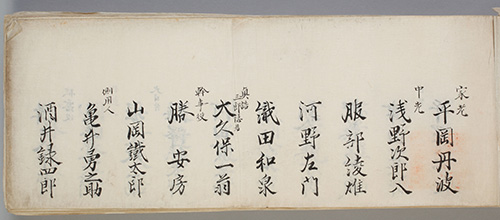 家老
平岡丹波
中老
浅野次郎八
服部綾雄
河野左門
織田和泉
大久保一翁
幹事役
勝安房
山岡鐵太郎
側用人
亀井勇之助
酒井録四郎